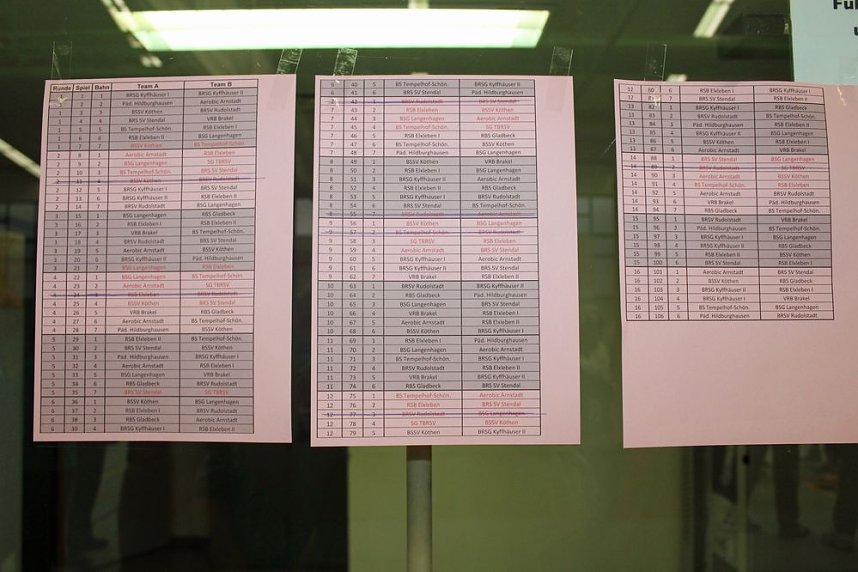 Runde Spiel Bahn Team A Team B
1 1 BRSG Kyffhäuser I BRSG Kyffhäuser II
1 2 2 Päd. Hildburghausen Aerobic Arnstadt
1 3 3 BSSV Köthen VRB Brakel
1 4 4 BRS SV Stendal BRSV Rudolstadt
1 5 5 BS Tempelhof-Schön. RSB Elxleben I
1 6 6 RSB Elxleben II BSG Langenhagen
1 7 7 BSSV Köthen BS Tempelhof-Schön.
2 8 1 Aerobic Arnstadt RSB Elxleben
2 9 2 BSG Langenhagen SG TBRSV
2 10 3 BS Tempelhof-Schön. BRS SV Stendal
2 11 4 BSSV Köthen BRSV Rudolstadt
2 12 5 BRSG Kyffhäuser II BRS SV Stendal
2 13 6 RSB Elxleben II BRSG Kyffhäuser I
2 14 7 BRSV Rudolstadt BSG Langenhagen
3 15 1 BSG Langenhagen RBS Gladbeck
3 16 2 RSB Elxleben I RSB Elxleben II
3 17 3 VRB Brakel BRSG Kyffhäuser I
3 18 4 BRSV Rudolstadt BS Tempelhof-Schön.
3 19 5 Aerobic Arnstadt BSSV Köthen
3 20 6 BRSG Kyffhäuser II Päd. Hildburghausen
3 21 7 BSG Langenhagen RSB Elxleben
4 22 1 BSG Langenhagen BS Tempelhof-Schön.
4 23 2 Aerobic Arnstadt SG TBRSV
4 24 3 RSB Elxleben BRSV Rudolstadt
4 25 4 BSSV Köthen BRS SV Stendal
4 26 5 VRB Brakel RBS Gladbeck
4 27 6 Aerobic Arnstadt BS Tempelhof-Schön.
4 28 7 Päd. Hildburghausen BSSV Köthen
5 29 1 RSB Elxleben II BS Tempelhof-Schön.
5 30 2 BRS SV Stendal BSSV Köthen
5 31 3 Päd. Hildburghausen BRSG Kyffhäuser I
5 32 4 Aerobic Arnstadt RSB Elxleben I
5 33 5 BSG Langenhagen VRB Brakel
5 34 6 RBS Gladbeck BRSV Rudolstadt
5 35 7 BRS SV Stendal SG TBRSV
6 36 1 BSSV Köthen BSG Langenhagen
6 37 2 RSB Elxleben I BRSV Rudolstadt
6 38 3 RBS Gladbeck Aerobic Arnstadt
6 39 4 BRSG Kyffhäuser I RSB Elxleben II
6 40 5 BS Tempelhof-Schön. BRSG Kyffhäuser II
6 41 6 BRS SV Stendal Päd. Hildburghausen
7 42 1 BRSV Rudolstadt BRS SV Stendal
7 43 2 RSB Elxleben BSSV Köthen
7 44 3 BSG Langenhagen Aerobic Arnstadt
7 45 4 BS Tempelhof-Schön. SG TBRSV
7 46 5 RSB Elxleben I RBS Gladbeck
7 47 6 BS Tempelhof-Schön. BSSV Köthen
7 48 7 Päd. Hildburghausen BSG Langenhagen
8 49 1 BSSV Köthen VRB Brakel
8 50 2 RSB Elxleben II BRSV Rudolstadt
8 51 3 BRSG Kyffhäuser II Aerobic Arnstadt
8 52 4 RSB Elxleben II RBS Gladbeck
8 53 5 BRS SV Stendal BRSG Kyffhäuser I
8 54 6 BRS SV Stendal RSB Elxleben II
8 55 7 BRSV Rudolstadt Aerobic Arnstadt
9 56 1 BSSV Köthen BSG Langenhagen
9 57 2 BS Tempelhof-Schön. BRSV Rudolstadt
9 58 3 SG TBRSV RSB Elxleben
9 59 4 Aerobic Arnstadt BRS SV Stendal
9 60 5 BRSG Kyffhäuser I Aerobic Arnstadt
9 61 6 BRSG Kyffhäuser II BRS SV Stendal
9 62 7 VRB Brakel RSB Elxleben II
10 63 1 BRSV Rudolstadt BRSG Kyffhäuser II
10 64 2 RBS Gladbeck Päd. Hildburghausen
10 65 3 BSG Langenhagen BRS SV Stendal
10 66 4 RSB Elxleben I VRB Brakel
10 67 5 Aerobic Arnstadt BS Tempelhof-Schön.
10 68 6 BSSV Köthen BRSG Kyffhäuser I
11 69 1 RSB Elxleben II Päd. Hildburghausen
11 70 2 BSG Langenhagen Aerobic Arnstadt
11 71 3 BS Tempelhof-Schön. BRSG Kyffhäuser I
11 72 4 BRSV Rudolstadt BSSV Köthen
11 73 5 VRB Brakel BRSG Kyffhäuser II
11 74 6 RBS Gladbeck BRS SV Stendal
12 75 1 BS Tempelhof-Schön. Aerobic Arnstadt
12 76 2 RSB Elxleben BRS SV Stendal
12 77 3 BRSV Rudolstadt BSG Langenhagen
12 78 4 SG TBRSV BSSV Köthen
12 79 5 BSSV Köthen BRSG Kyffhäuser II
12 80 6 RSB Elxleben I BRSG Kyffhäuser I
12 81 7 BRS SV Stendal RSB Elxleben II
13 82 1 BRSG Kyffhäuser I RBS Gladbeck
13 83 2 BRSV Rudolstadt BS Tempelhof-Schön.
13 84 3 Päd. Hildburghausen RSB Elxleben I
13 85 4 BRSG Kyffhäuser II BSG Langenhagen
13 86 5 BSSV Köthen RSB Elxleben II
13 87 6 Aerobic Arnstadt VRB Brakel
14 88 1 BRS SV Stendal BSG Langenhagen
14 89 BRSV Rudolstadt SG TBRSV
14 90 3 Aerobic Arnstadt BSSV Köthen
14 91 4 BS Tempelhof-Schön. RSB Elxleben
14 92 5 Aerobic Arnstadt BRSV Rudolstadt
14 93 6 VRB Brakel Päd. Hildburghausen
14 94 7 RBS Gladbeck BS Tempelhof-Schön.
15 95 1 BRSV Rudolstadt VRB Brakel
15 96 2 Päd. Hildburghausen BS Tempelhof-Schön.
15 97 3 BRSG Kyffhäuser I BSG Langenhagen
15 98 4 BRSG Kyffhäuser II RBS Gladbeck
15 99 5 RSB Elxleben II Aerobic Arnstadt
15 100 6 RSB Elxleben I BRS SV Stendal
16 101 1 Aerobic Arnstadt BRS SV Stendal
16 102 2 BSSV Köthen RBS Gladbeck
16 103 3 BRSG Kyffhäuser II RSB Elxleben I
16 104 4 BRSG Kyffhäuser I VRB Brakel
16 105 5 BS Tempelhof-Schön. BSG Langenhagen
16 106 6 Päd. Hildburghausen BRSV Rudolstadt